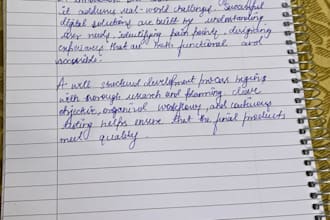 it address real-world challenges. Successful
digital solutions are built by understanding
user needs, identifying pain points, designing
experiences that are both functional and
accessible.
A well structured development process begins
with thorough research and planning. Clear
objective, organized workflows, and continuous
testing helps ensure that the final products
meet quality.